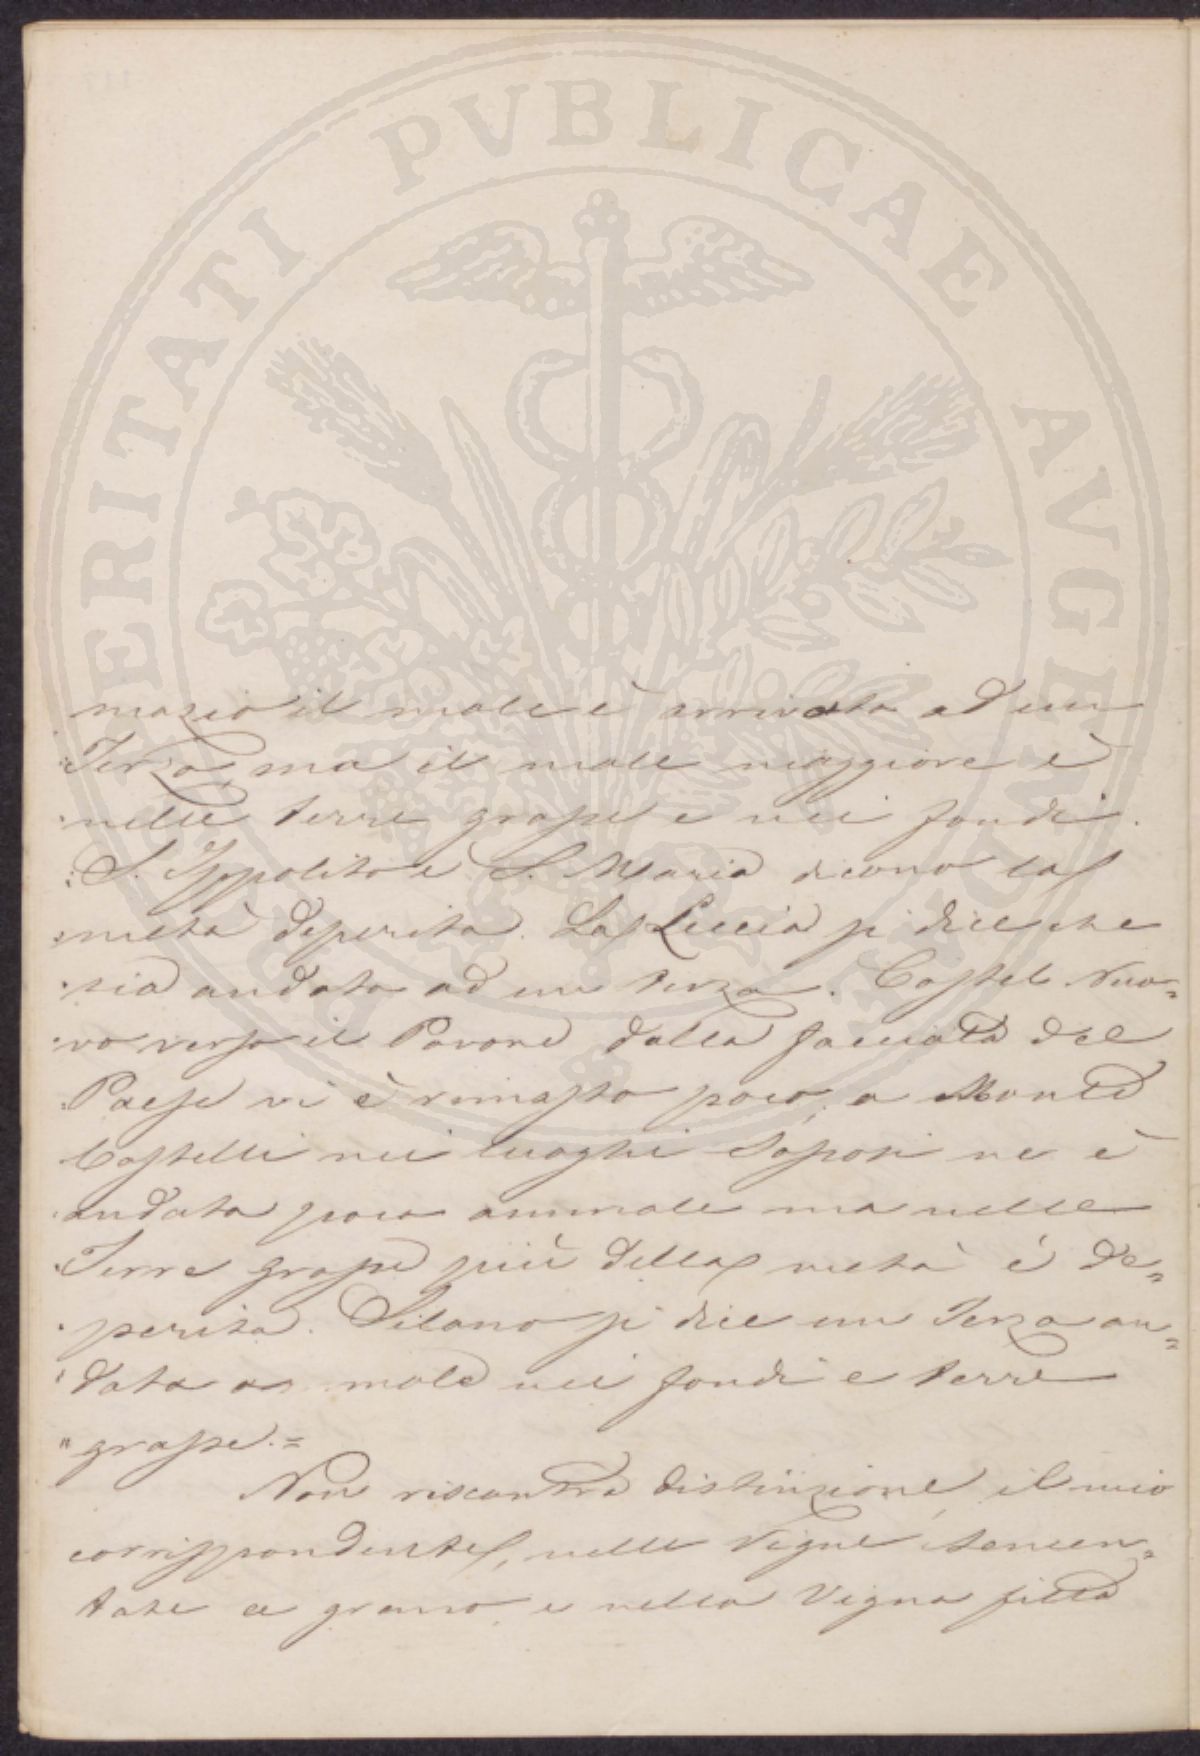 PVBLICAE
ERITATI
AVGEN
mazio il male è arrivato ad un
Terzo, ma il male maggiore è
nelle terre grasse e nei fondi.
S. Ippolito e S. Maria dicono la
metà deperita. La Leccia si dice che
sia andata ad un terzo. Castel Nuo=
vo verso il Pavone dalla facciata del
Paese vi è rimasto poco, a Monte
Castelli nei luoghi sposti ne è
andata poco a male ma nelle
Terre grasse più della metà é de=
perita. Silano si dice un Terzo an=
data a male nei fondi e terre
" grasse. =
Non riscontra distinzione, il mio
corrispondente, nelle Vigne semen=
tate a grano, e nella Vigna fitta